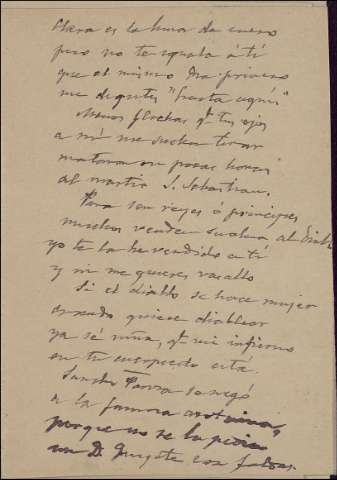 Clara es la luna de enero
pero no te iguala á tí
que el mismo sol primero
me dejates "hasta aquí"
Menos flechas q.e tus ojos
a mí me suelen tirar
mataron en pocas horas
al martir S. Sebastian.
Para ser reyes ó principes
muchos venden su alma al diablo
yo te la he vendido a tí
y ni me quieres vasallo
Si el diablo se hace mujer
cuando quiere diablear
ya sé niña, q.e mi infierno
en tu cuerpecito está.
Sancho Panza se negó
a la famosa
porque no se la pedia
un D. Quijote con faldas.